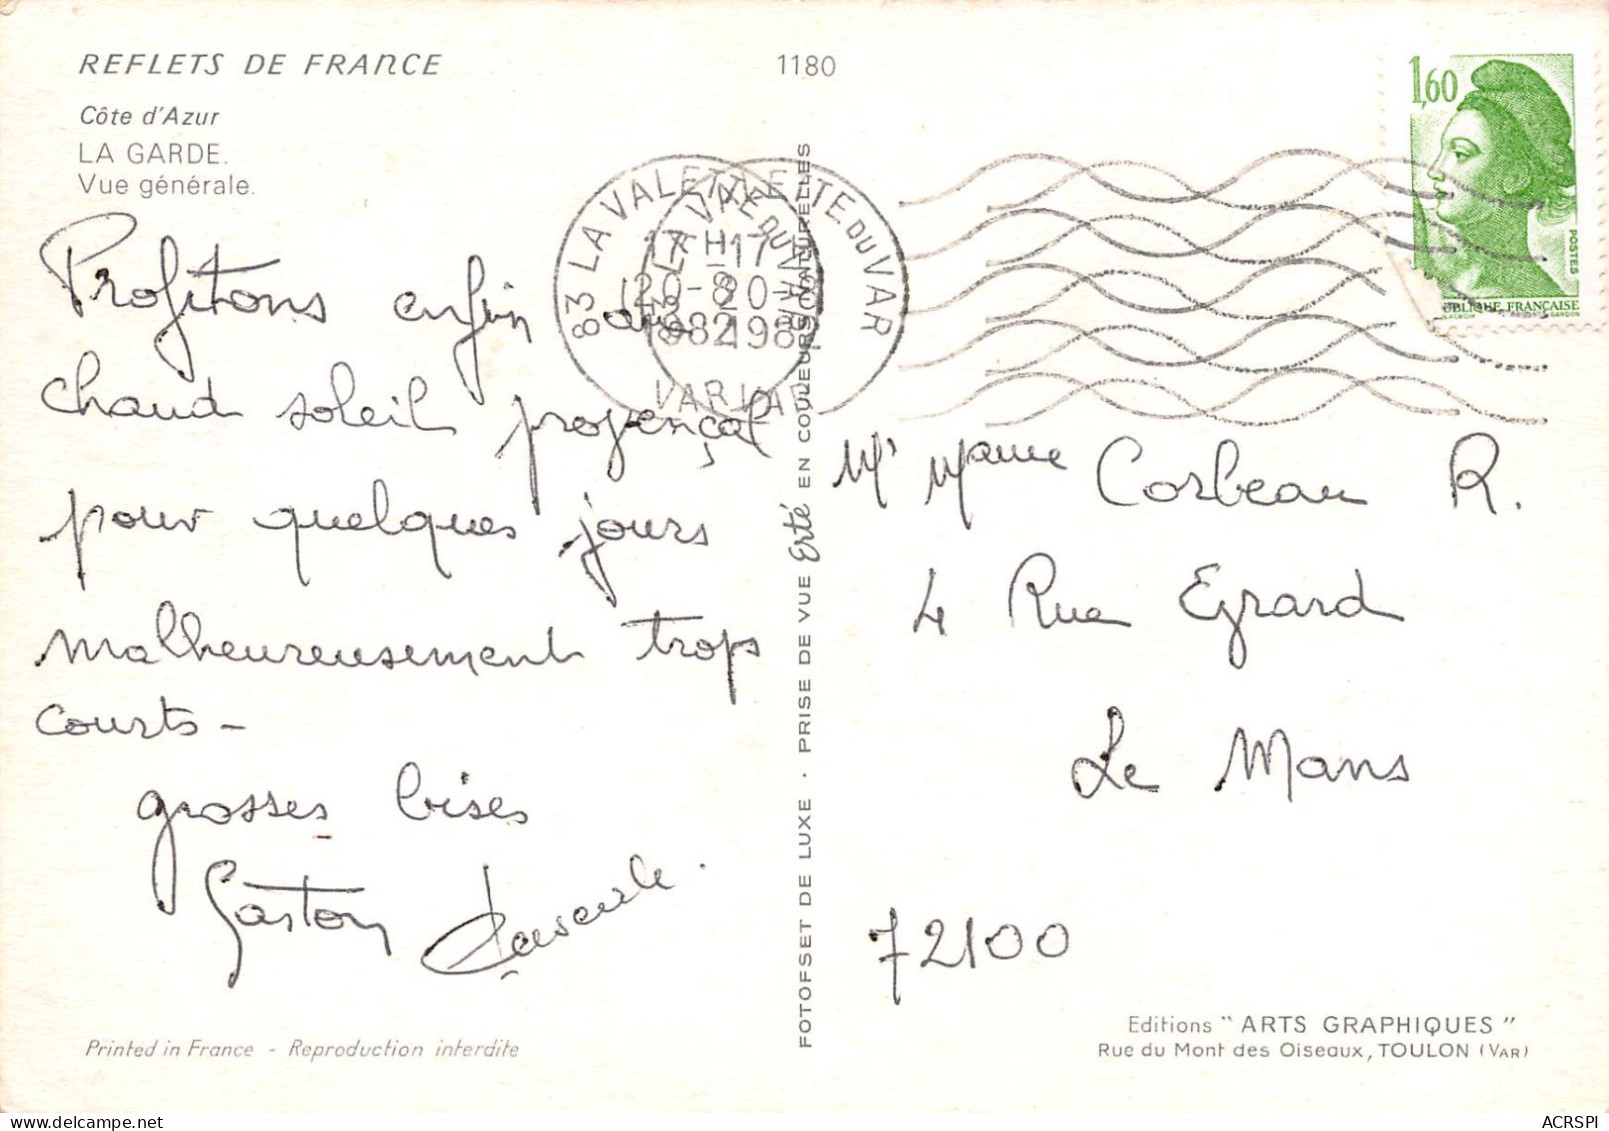 REFLETS DE FRANCE
1180
Côte d'Azur
LA GARDE.
Vue générale.
1,60
POSTES
UBLIQUE FRANÇAISE
LACROIX GANDON
83 LA VALETTE DU VAR
17H
20-8
1982
VAR
Profitons enfin du
chaud soleil provençal
pour quelques jours
malheureusement trops
courts -
grosses bises
Gaston
Mr Mame Corbeau R.
4 Rue Egrard
Le Mans
72100
FOTOFSET DE LUXE . PRISE DE VUE Erté EN COULEURS NATURELLES
Printed in France - Reproduction interdite
Editions "ARTS GRAPHIQUES"
Rue du Mont des Oiseaux, TOULON (VAR)
ACRSPI